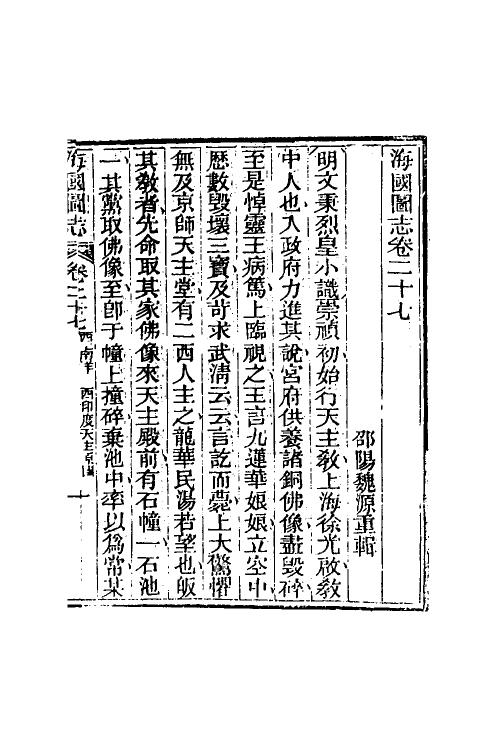 海國圖志卷二十七
邵陽魏源重輯
明文秉烈皇小識崇禎初始行天主敎上海徐光啟敎
中人也入政府力進其說宮府供養諸銅佛像盡毀碎
至是悼靈王病篤上臨視之王言九蓮華娘娘立空中
歷數毀壞三寶及苛求武清云云言訖而薨上大驚懼
無及京師天主堂有二西人主之龍華民湯若望也皈
其敎者先命取其家佛像來天主殿前有石幢一石池
一其黨取佛像至卽于幢上撞碎棄池中率以爲常某
海國圖志 卷二十七 西南洋 西印度天主